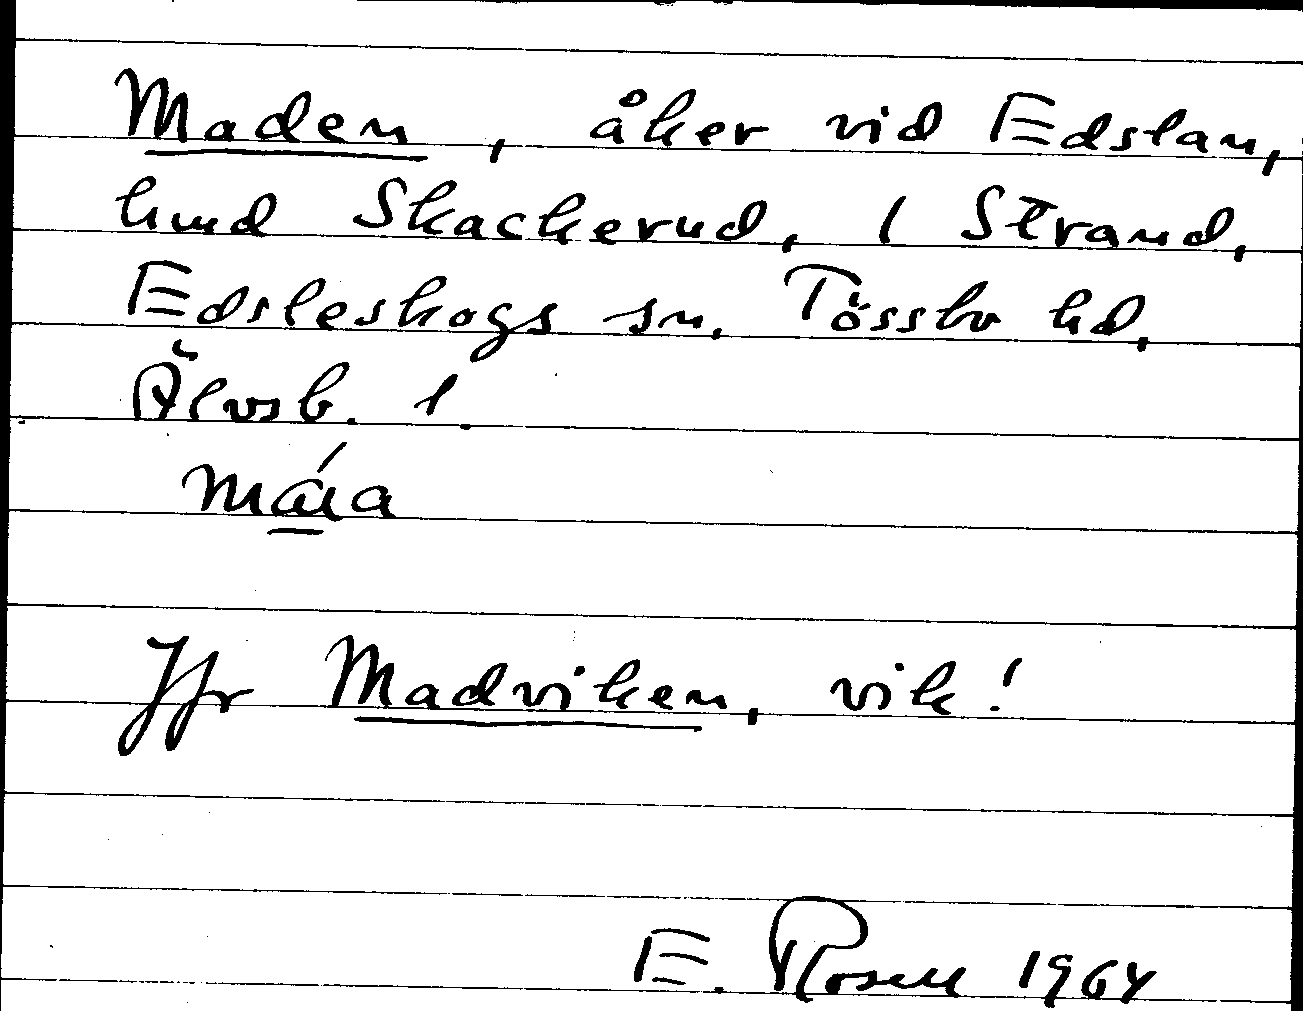 Maden, åker vid Edslan,
hmd Skackerud, 1 Strand,
Edsleskogs sn. Tössbo hd,
Älvsb. l.
Jfr Madviken, vik!
E. Rosell 1964